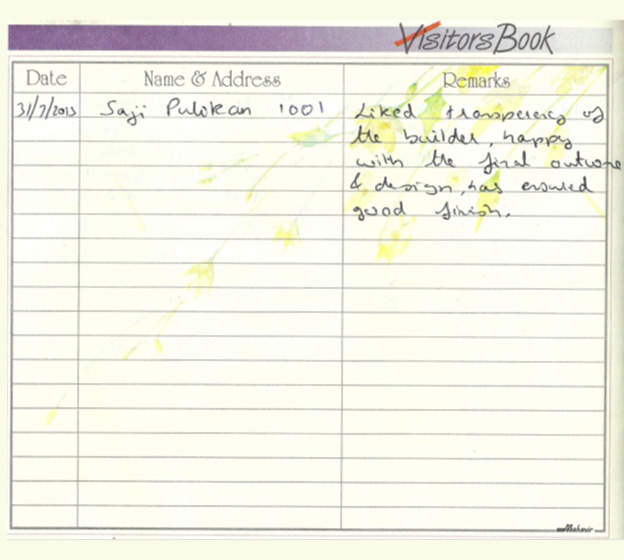 Visitors Book
Date Name & Address Remarks
31/7/2013 Saji Pulokan 1001 Liked transperency of
the builder, happy
with the final outcome
& design, has ensured
good finish.
Mahavir